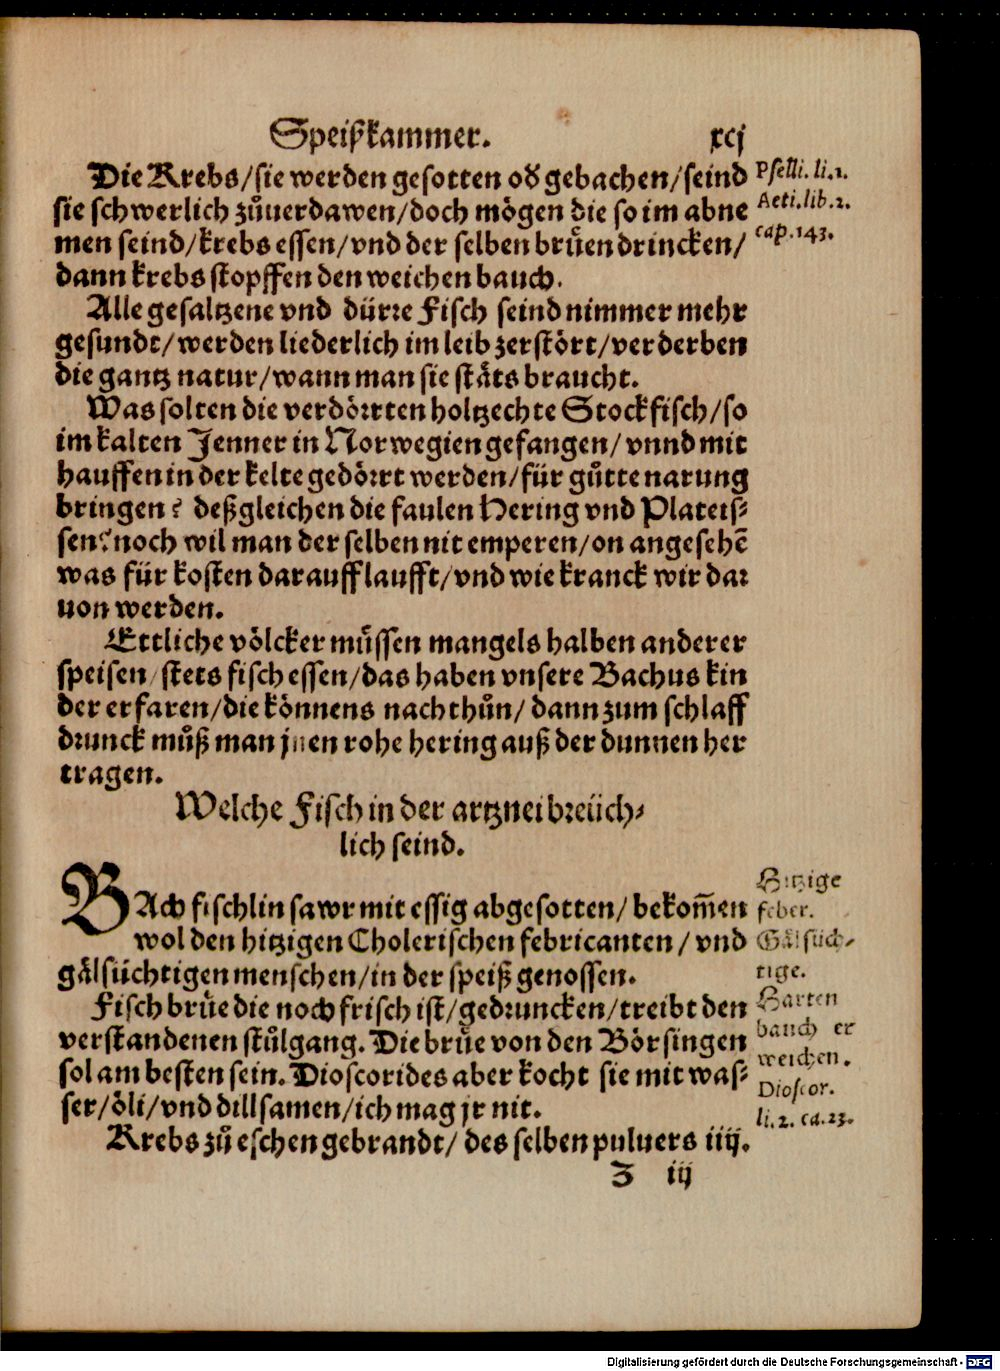 Speißkammer. xcj
Die Krebs/sie werden gesotten oď gebachen/seind
sie schwerlich zůuerdawen/doch mögen die so im abne
men seind/krebs essen/vnd der selben bruͤen drincken/
dann krebs stopffen den weichen bauch.
Pselli. li.1.
Aeti.lib.2.
cap.143.
Alle gesaltzene vnd dürre Fisch seind nimmer mehr
gesundt/werden liederlich im leib zerstört/verderben
die gantz natur/wann man sie staͤts braucht.
Was solten die verdörrten holtzechte Stockfisch/so
im kalten Jenner in Norwegien gefangen/vnnd mit
hauffen in der kelte gedörrt werden/für gůtte narung
bringen? deßgleichen die faulen Hering vnd Plateis-
sen? noch wil man der selben nit emperen/on angesehē
was für kosten darauff laufft/vnd wie kranck wir dar
uon werden.
Ettliche völcker muͤssen mangels halben anderer
speisen/stets fisch essen/das haben vnsere Bachus kin
der erfaren/die könnens nachthůn/dann zum schlaff
drunck můß man jnen rohe hering auß der dunnen her
tragen.
Welche Fisch in der artznei breüch-
lich seind.
BAch fischlin sawr mit essig abgesotten/bekom̄en
wol den hitzigen Cholerischen febricanten/vnd
gälsüchtigen menschen/in der speiß genossen.
Hitzige
feber.
Gälsüch-
tige.
Fisch bruͤe die noch frisch ist/gedruncken/treibt den
verstandenen stůlgang. Die bruͤe von den Börsingen
sol am besten sein. Dioscorides aber kocht sie mit was-
ser/öli/vnd dillsamen/ich mag jr nit.
Harten
bauch er
weichen.
Dioscor.
li.2. ca.23.
Krebs zů eschen gebrandt/des selben puluers iiij.
Z iij
Digitalisierung gefördert durch die Deutsche Forschungsgemeinschaft - DFG